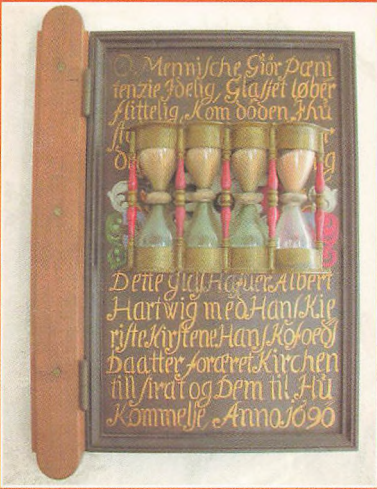 O, Menniſche Giör Pæni
tenzie Jdelig, Glaſſet løber
flittelig, Kom döden, ihu
Dette Glaſſ Hafuer Albert
Hartwig med Hanſ Kie
riſte Kirſtene Hanſ Kofoedſ
Daatter foræret Kirchen
till ſirat og Dem til Hu
Kommelſe, Anno 1690